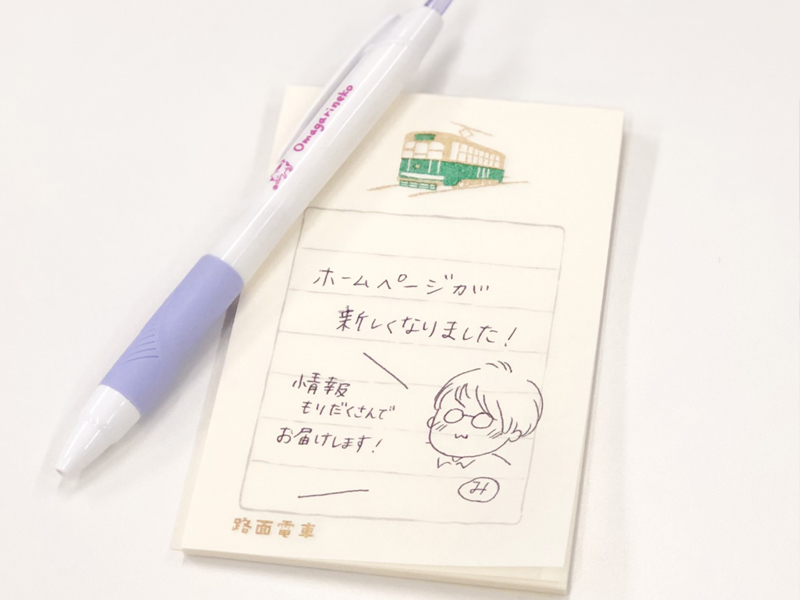 Omagarineko
ホームページが
新しくなりました!
情報
もりだくさんで
お届けします!
み
路面電車